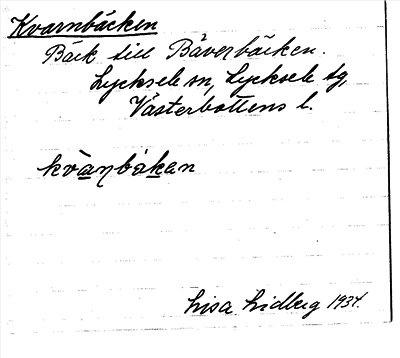 Kvarnbäcken
Bäck till Bäverbäcken.
Lycksele sn, Lycksele tg,
Västerbottens l.
kvàaɳbákan
Lisa Lidberg 1934.